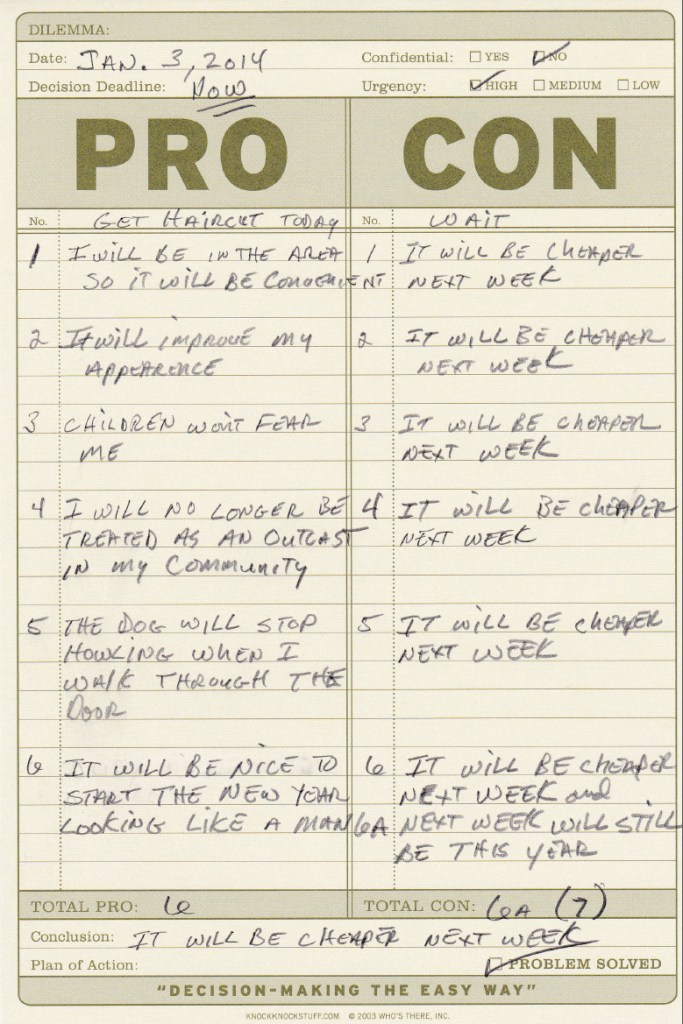 DILEMMA:
Date: JAN. 3, 2014 Confidential: YES NO
Decision Deadline: NOW Urgency: HIGH MEDIUM LOW
PRO CON
No. GET HAIRCUT TODAY No. WAIT
1 I WILL BE IN THE AREA
SO IT WILL BE CONVENIENT
2 IT WILL IMPROVE MY
APPEARENCE
3 CHILDREN WON'T FEAR
ME
4 I WILL NO LONGER BE
TREATED AS AN OUTCAST
IN MY COMMUNITY
5 THE DOG WILL STOP
HOWLING WHEN I
WALK THROUGH THE
DOOR
6 IT WILL BE NICE TO
START THE NEW YEAR
LOOKING LIKE A MAN
1 IT WILL BE CHEAPER
NEXT WEEK
2 IT WILL BE CHEAPER
NEXT WEEK
3 IT WILL BE CHEAPER
NEXT WEEK
4 IT WILL BE CHEAPER
NEXT WEEK
5 IT WILL BE CHEAPER
NEXT WEEK
6 IT WILL BE CHEAPER
NEXT WEEK and
6A NEXT WEEK WILL STILL
BE THIS YEAR
TOTAL PRO: 6 TOTAL CON: 6A (7)
Conclusion: IT WILL BE CHEAPER NEXT WEEK
Plan of Action: PROBLEM SOLVED
"DECISION-MAKING THE EASY WAY"
KNOCKKNOCKSTUFF.COM © 2003 WHO'S THERE, INC.